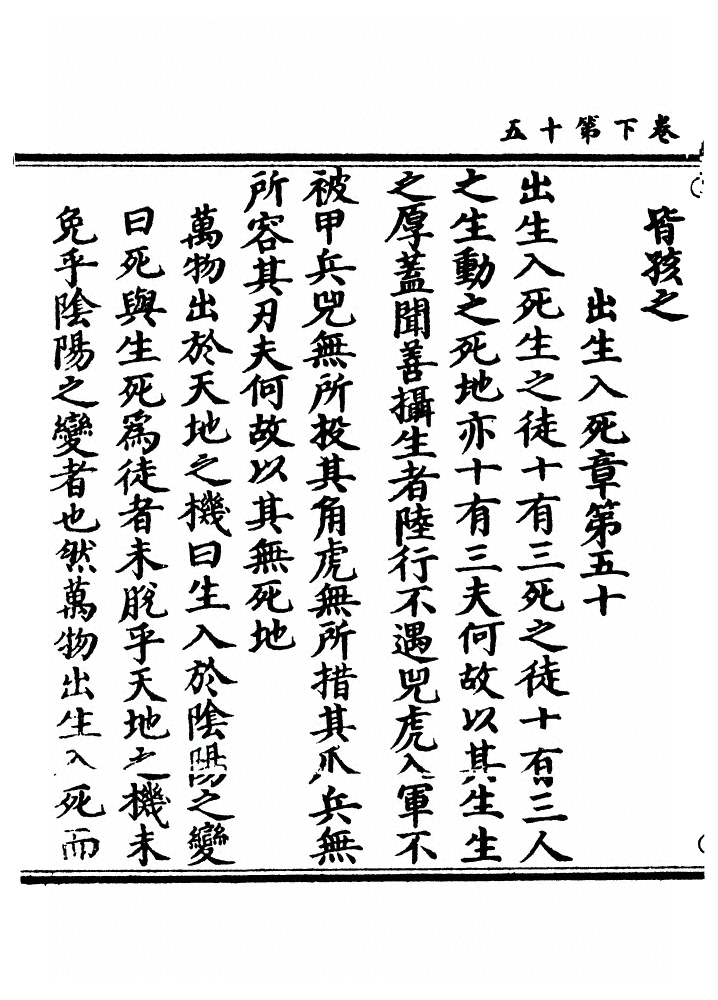 卷下第十五
皆孩之
出生入死章第五十
出生入死生之徒十有三死之徒十有三人
之生動之死地亦十有三夫何故以其生生
之厚蓋聞善攝生者陸行不遇兕虎入軍不
被甲兵兕無所投其角虎無所措其爪兵無
所容其刃夫何故以其無死地
萬物出於天地之機曰生入於陰陽之變
曰死與生死爲徒者未脫乎天地之機未
免乎陰陽之變者也然萬物出生入死而